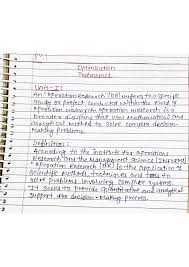 Optimization
Techniques
Unit-I:
An "Operation Research" (OR) refers to a specific
Study or project conducted within the field of
operation research. Operation research is a
broader discipline that uses Mathematical and
Analytical method to solve complex decision-
Making problems.
Definition:
According to the institute for operations
Research and the Management Science (INFORMS)
"Operation Research" (OR) is the application of
Scientific Methods, techniques and tools to
solve problems involving complex systems.
It seeks to provide Quantitative and analytical
Support for decision-Making process.